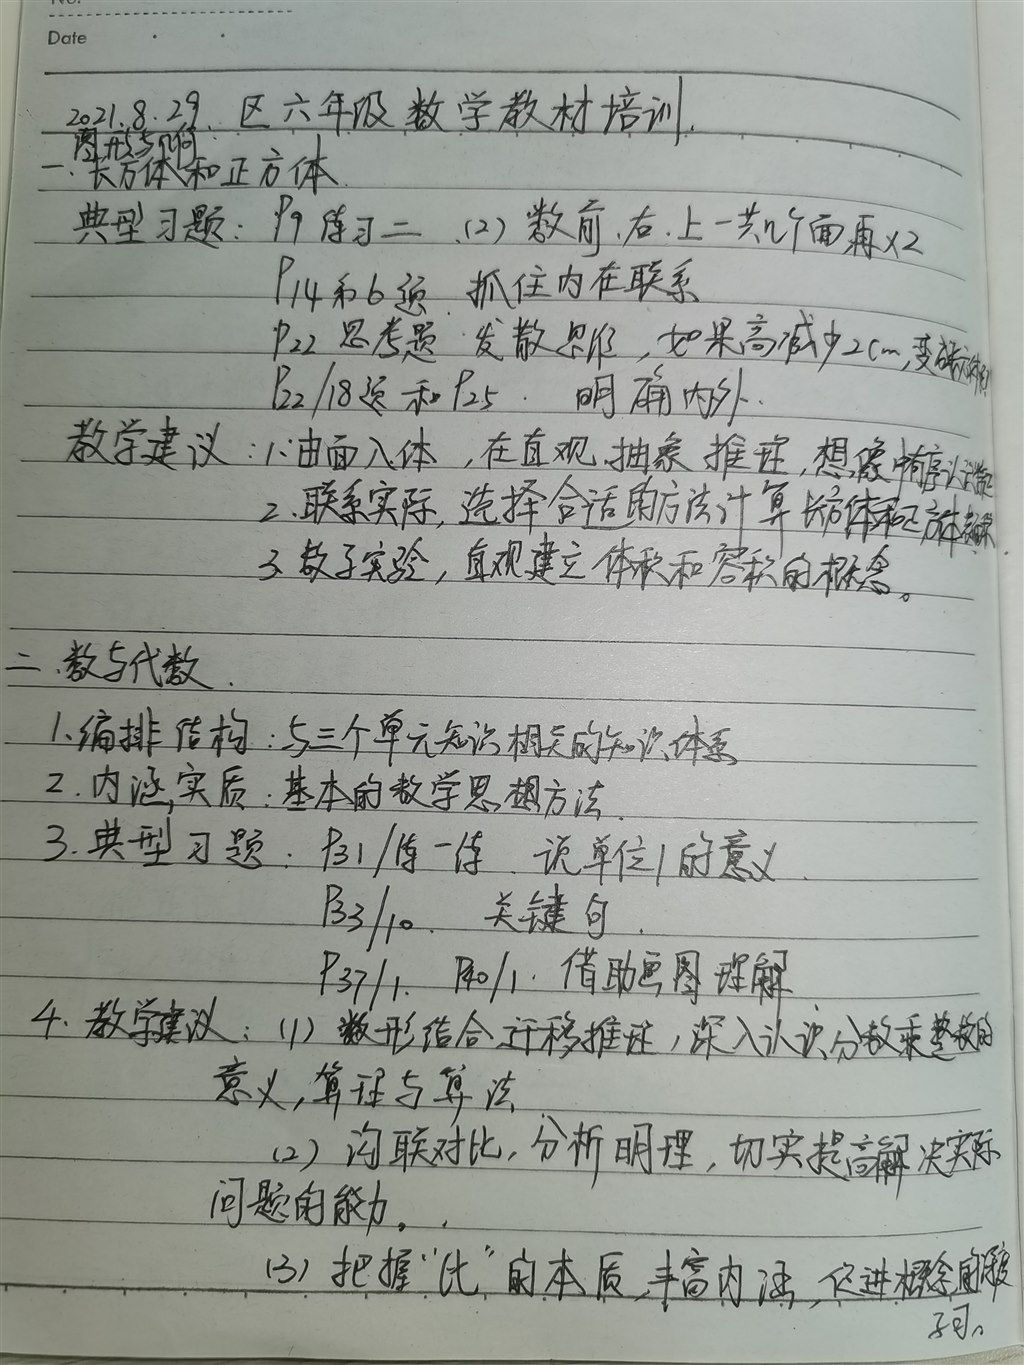 No.
Date
2021.8.29. 区六年级数学教材培训.
图形与几何
一.长方体和正方体
典型习题: P9 练习二 (2) 数前.右.上一共几个面再×2
P14和6题 抓住内在联系
P22 思考题 发散思维,如果高减少2cm,变成
P22/18题和P25. 明确内外.
教学建议:1.由面入体,在直观.抽象推理,想像中有序认识
2.联系实际,选择合适的方法计算长方体和正方体
3.数学实验,直观建立体积和容积的概念。
二.数与代数.
1.编排结构:与三个单元知识相关的知识体系
2.内涵实质:基本的数学思想方法.
3.典型习题: P31/练一练 说单位1的意义.
P33/10. 关键句.
P37/1. P40/1. 借助画图理解
4.教学建议:(1)数形结合迁移推理,深入认识分数乘整数的
意义,算理与算法
(2)沟联对比,分析明理,切实提高解决实际
问题的能力。
(3)把握“比”的本质,丰富内涵,促进概念的深度